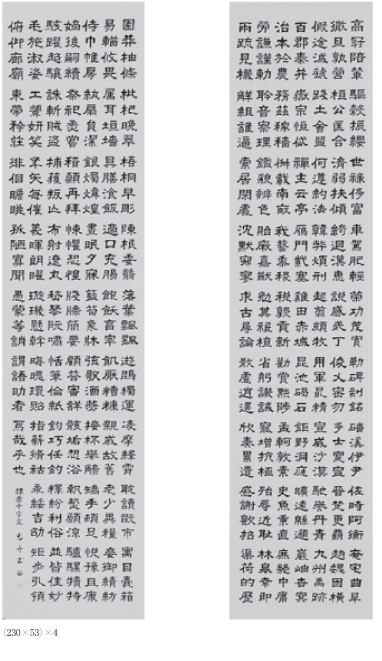 高冠陪輦驅轂振纓世祿侈富車駕肥輕策功茂實勒碑刻銘磻溪伊尹佐時阿衡奄宅曲阜
微旦孰營桓公匡合濟弱扶傾綺迴漢惠說感武丁俊乂密勿多士寔寧晉楚更霸趙魏困橫
假途滅虢踐土會盟何遵約法韓弊煩刑起翦頗牧用軍最精宣威沙漠馳譽丹青九州禹跡
百郡秦并嶽宗恒岱禪主云亭雁門紫塞雞田赤城昆池碣石鉅野洞庭曠遠緜邈巖岫杳冥
治本於農務茲稼穡俶載南畝我藝黍稷稅熟貢新勸賞黜陟孟軻敦素史魚秉直庶幾中庸
勞謙謹勑聆音察理鑑貌辨色貽厥嘉猷勉其祗植省躬譏誡寵增抗極殆辱近恥林皋幸即
兩疏見機解組誰逼索居閑處沉默寂寥求古尋論散慮逍遙欣奏累遣慼謝歡招渠荷的歷
園莽抽條枇杷晚翠梧桐早凋陳根委翳落葉飄颻遊鵾獨運凌摩絳霄耽讀翫市寓目囊箱
易輶攸畏屬耳垣牆具膳飡飯適口充腸飽飫烹宰飢厭糟糠親戚故舊老少異糧妾御績紡
侍巾帷房紈扇圓潔銀燭煒煌晝眠夕寐籃筍象床弦歌酒讌接杯舉觴矯手頓足悅豫且康
嫡後嗣續祭祀烝嘗稽顙再拜悚懼恐惶牋牒簡要顧答審詳骸垢想浴執熱願涼驢騾犢特
駭躍超驤誅斬賊盜捕獲叛亡布射遼丸嵇琴阮嘯恬筆倫紙鈞巧任釣釋紛利俗並皆佳妙
毛施淑姿工顰妍笑年矢每催羲暉朗曜璇璣懸斡晦魄環照指薪修祜永綏吉劭矩步引領
俯仰廊廟束帶矜莊徘徊瞻眺孤陋寡聞愚蒙等誚謂語助者焉哉乎也
隸書千字文
(230×53)×4